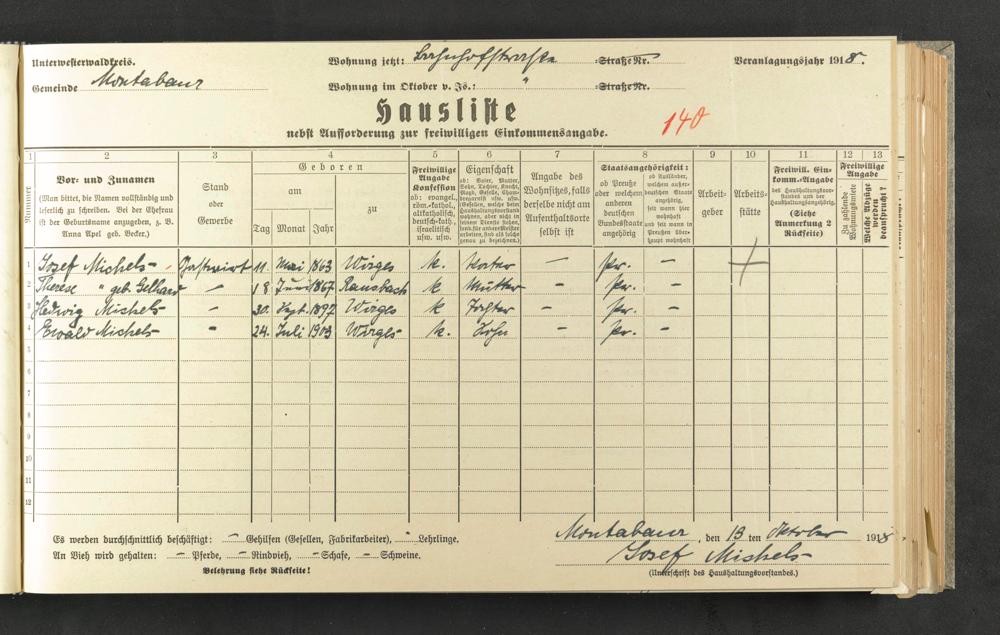 Unterwesterwaldkreis.
Wohnung jetzt: Bahnhofstraße Straße Nr.
Veranlagungsjahr 1918.
Gemeinde Montabaur
Wohnung im Oktober v. Js.: " Straße Nr.
Hausliste
nebst Aufforderung zur freiwilligen Einkommensangabe.
140
1 2 3 4 5 6 7 8 9 10 11 12 13
Nummer
Vor- und Zunamen
(Man bittet, die Namen vollständig und
leserlich zu schreiben. Bei der Ehefrau
ist der Geburtsname anzugeben, z. B.
Anna Apel geb. Becker.)
Stand
oder
Gewerbe
Geboren
am
zu
Tag Monat Jahr
Freiwillige
Angabe
Konfession
ob: evangel.,
röm.-kathol.,
altkatholisch,
deutsch-kath.,
israelitisch
usw. usw.
Eigenschaft
ob: Vater, Mutter,
Sohn, Tochter, Knecht,
Magd, Geselle,
genau zu bezeichnen.)
Angabe des
Wohnsitzes, falls
derselbe nicht am
Aufenthaltsorte
selbst ist
Staatsangehörigkeit:
ob Preuße
oder welchem
anderen
deutschen
Bundesstaate
angehörig
ob Ausländer,
welchem außer-
deutschen Staate
angehörig,
seit wann hier
wohnhaft
seit wann in
Preußen über-
haupt wohnhaft
Arbeit-
geber
Arbeits-
stätte
Freiwill. Ein-
komm.-Angabe
des Haushaltungsvor-
standes und der
Haushaltungsangehörig.
(Siehe
Anmerkung 2
Rückseite)
Freiwillige
Angabe
Zu zahlende
Wohnungsmiete
Welche Abzüge
werden
beansprucht?
1 Josef Michels - Gastwirt 11. Mai 1863 Wirges k. Vater - Pr. -
2 Therese " geb. Gelhard - 18 Juni 1867 Ransbach k Mutter - Pr. -
3 Hedwig Michels - 30. Sept. 1897 Wirges k Tochter - Pr. -
4 Ewald Michels - 24. Juli 1903 Wirges k. Sohn - Pr. -
5
6
7
8
9
10
11
12
Es werden durchschnittlich beschäftigt: - Gehilfen (Gesellen, Fabrikarbeiter), - Lehrlinge.
An Vieh wird gehalten: - Pferde, - Rindvieh, - Schafe, - Schweine.
Belehrung siehe Rückseite!
Montabaur, den 13 ten Oktober 191
Josef Michels
(Unterschrift des Haushaltungsvorstandes.)